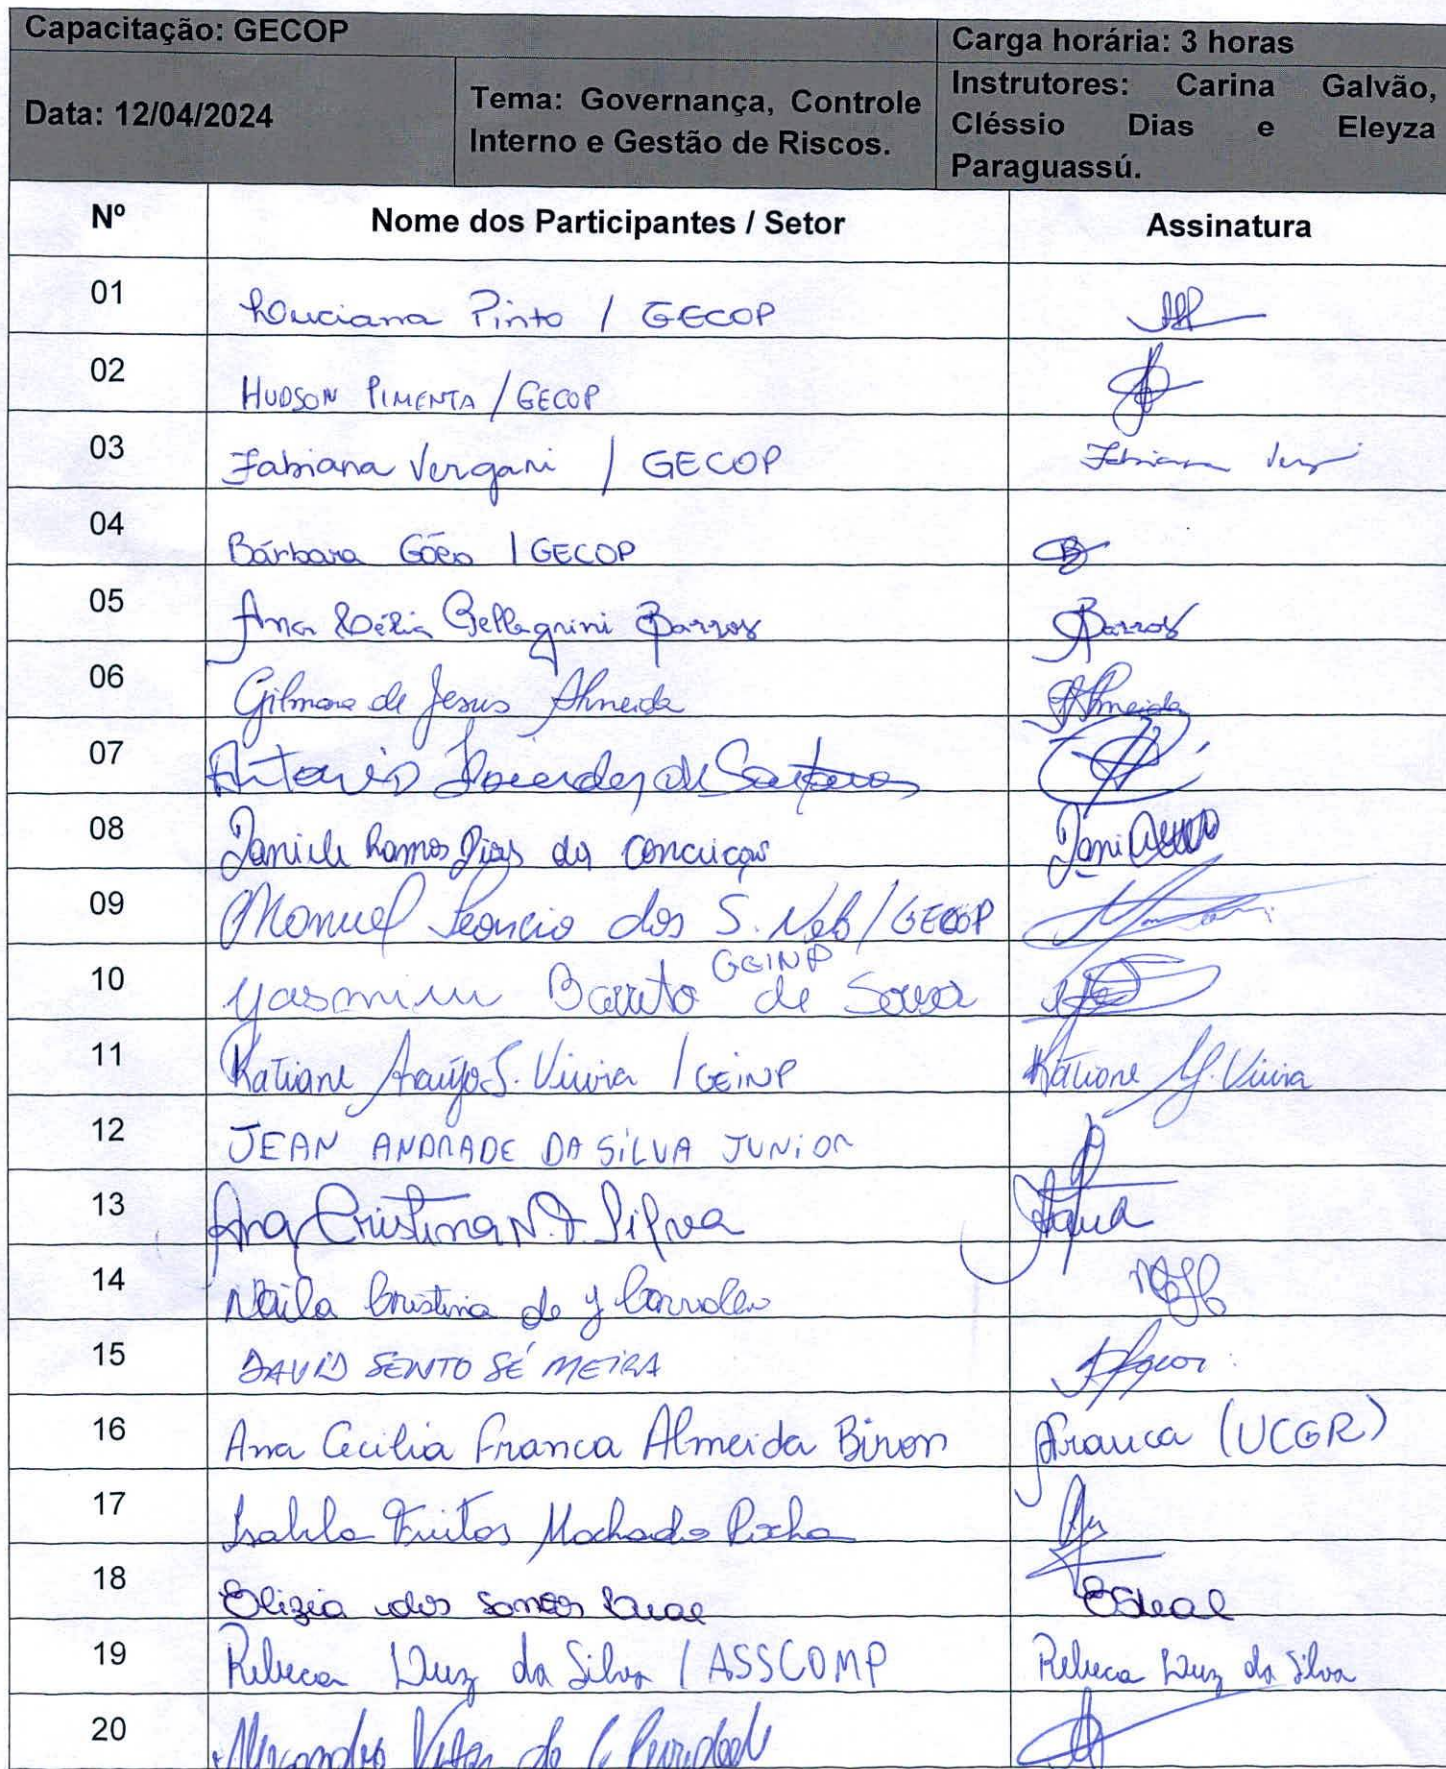 Capacitação: GECOP
Carga horária: 3 horas
Data: 12/04/2024
Tema: Governança, Controle
Interno e Gestão de Riscos.
Instrutores: Carina Galvão,
Cléssio Dias e Eleyza
Paraguassú.
Nº Nome dos Participantes / Setor Assinatura
01 Luciana Pinto / GECOP
02 HUDSON PIMENTA / GECOP
03 Fabiana Vergani / GECOP Fabiana
04 Bárbara Góes / GECOP
05 Ana Célia Pellegrini Barros Barros
06 Gilmara de Jesus Almeida Almeida
07 Antonio de
08 Daniele Ramos Dias da Conceição Dani
09 Manuel Leoncio dos S. Neto / GECOP
GEINP
10 Yasmim Barreto de Sousa
11 Katiane Araújo S. Vieira / GEINP Katiane Vieira
12 JEAN ANDRADE DA SILVA JUNIOR
13 Ana Cristina N. Silva
14 Naila Cristina de
15 DAVID SENTO SÉ MEIRA
16 Ana Cecilia Franca Almeida Biron Franca (UCGR)
17 Freitas Machado Rocha
18 Elizia dos Santos Leal ESLeal
19 Rebeca Luz da Silva / ASSCOMP Rebeca Luz da Silva
20